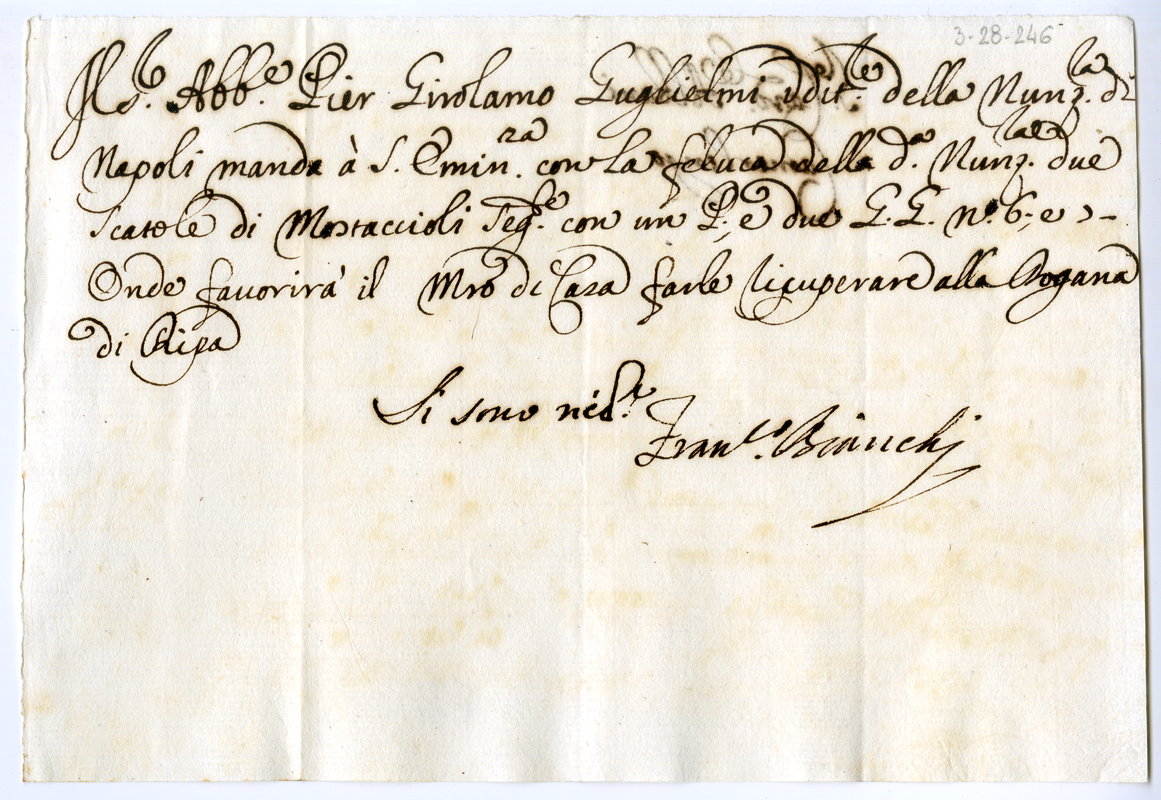 3-28-246
Il Sr. Abb.e Pier Girolamo Guglielmi Udit.re della Nunz.ra di
Napoli manda à S. Emin.za con la feluca della d.a Nunz.ra due
Scatole di Mostaccioli seg.te con un P., e due G.G. n.o 6., e 7
Onde favorirà il Mro di Casa farle ricuperare alla Dogana
di Ripa
Si sono
Fran.co Bianchi